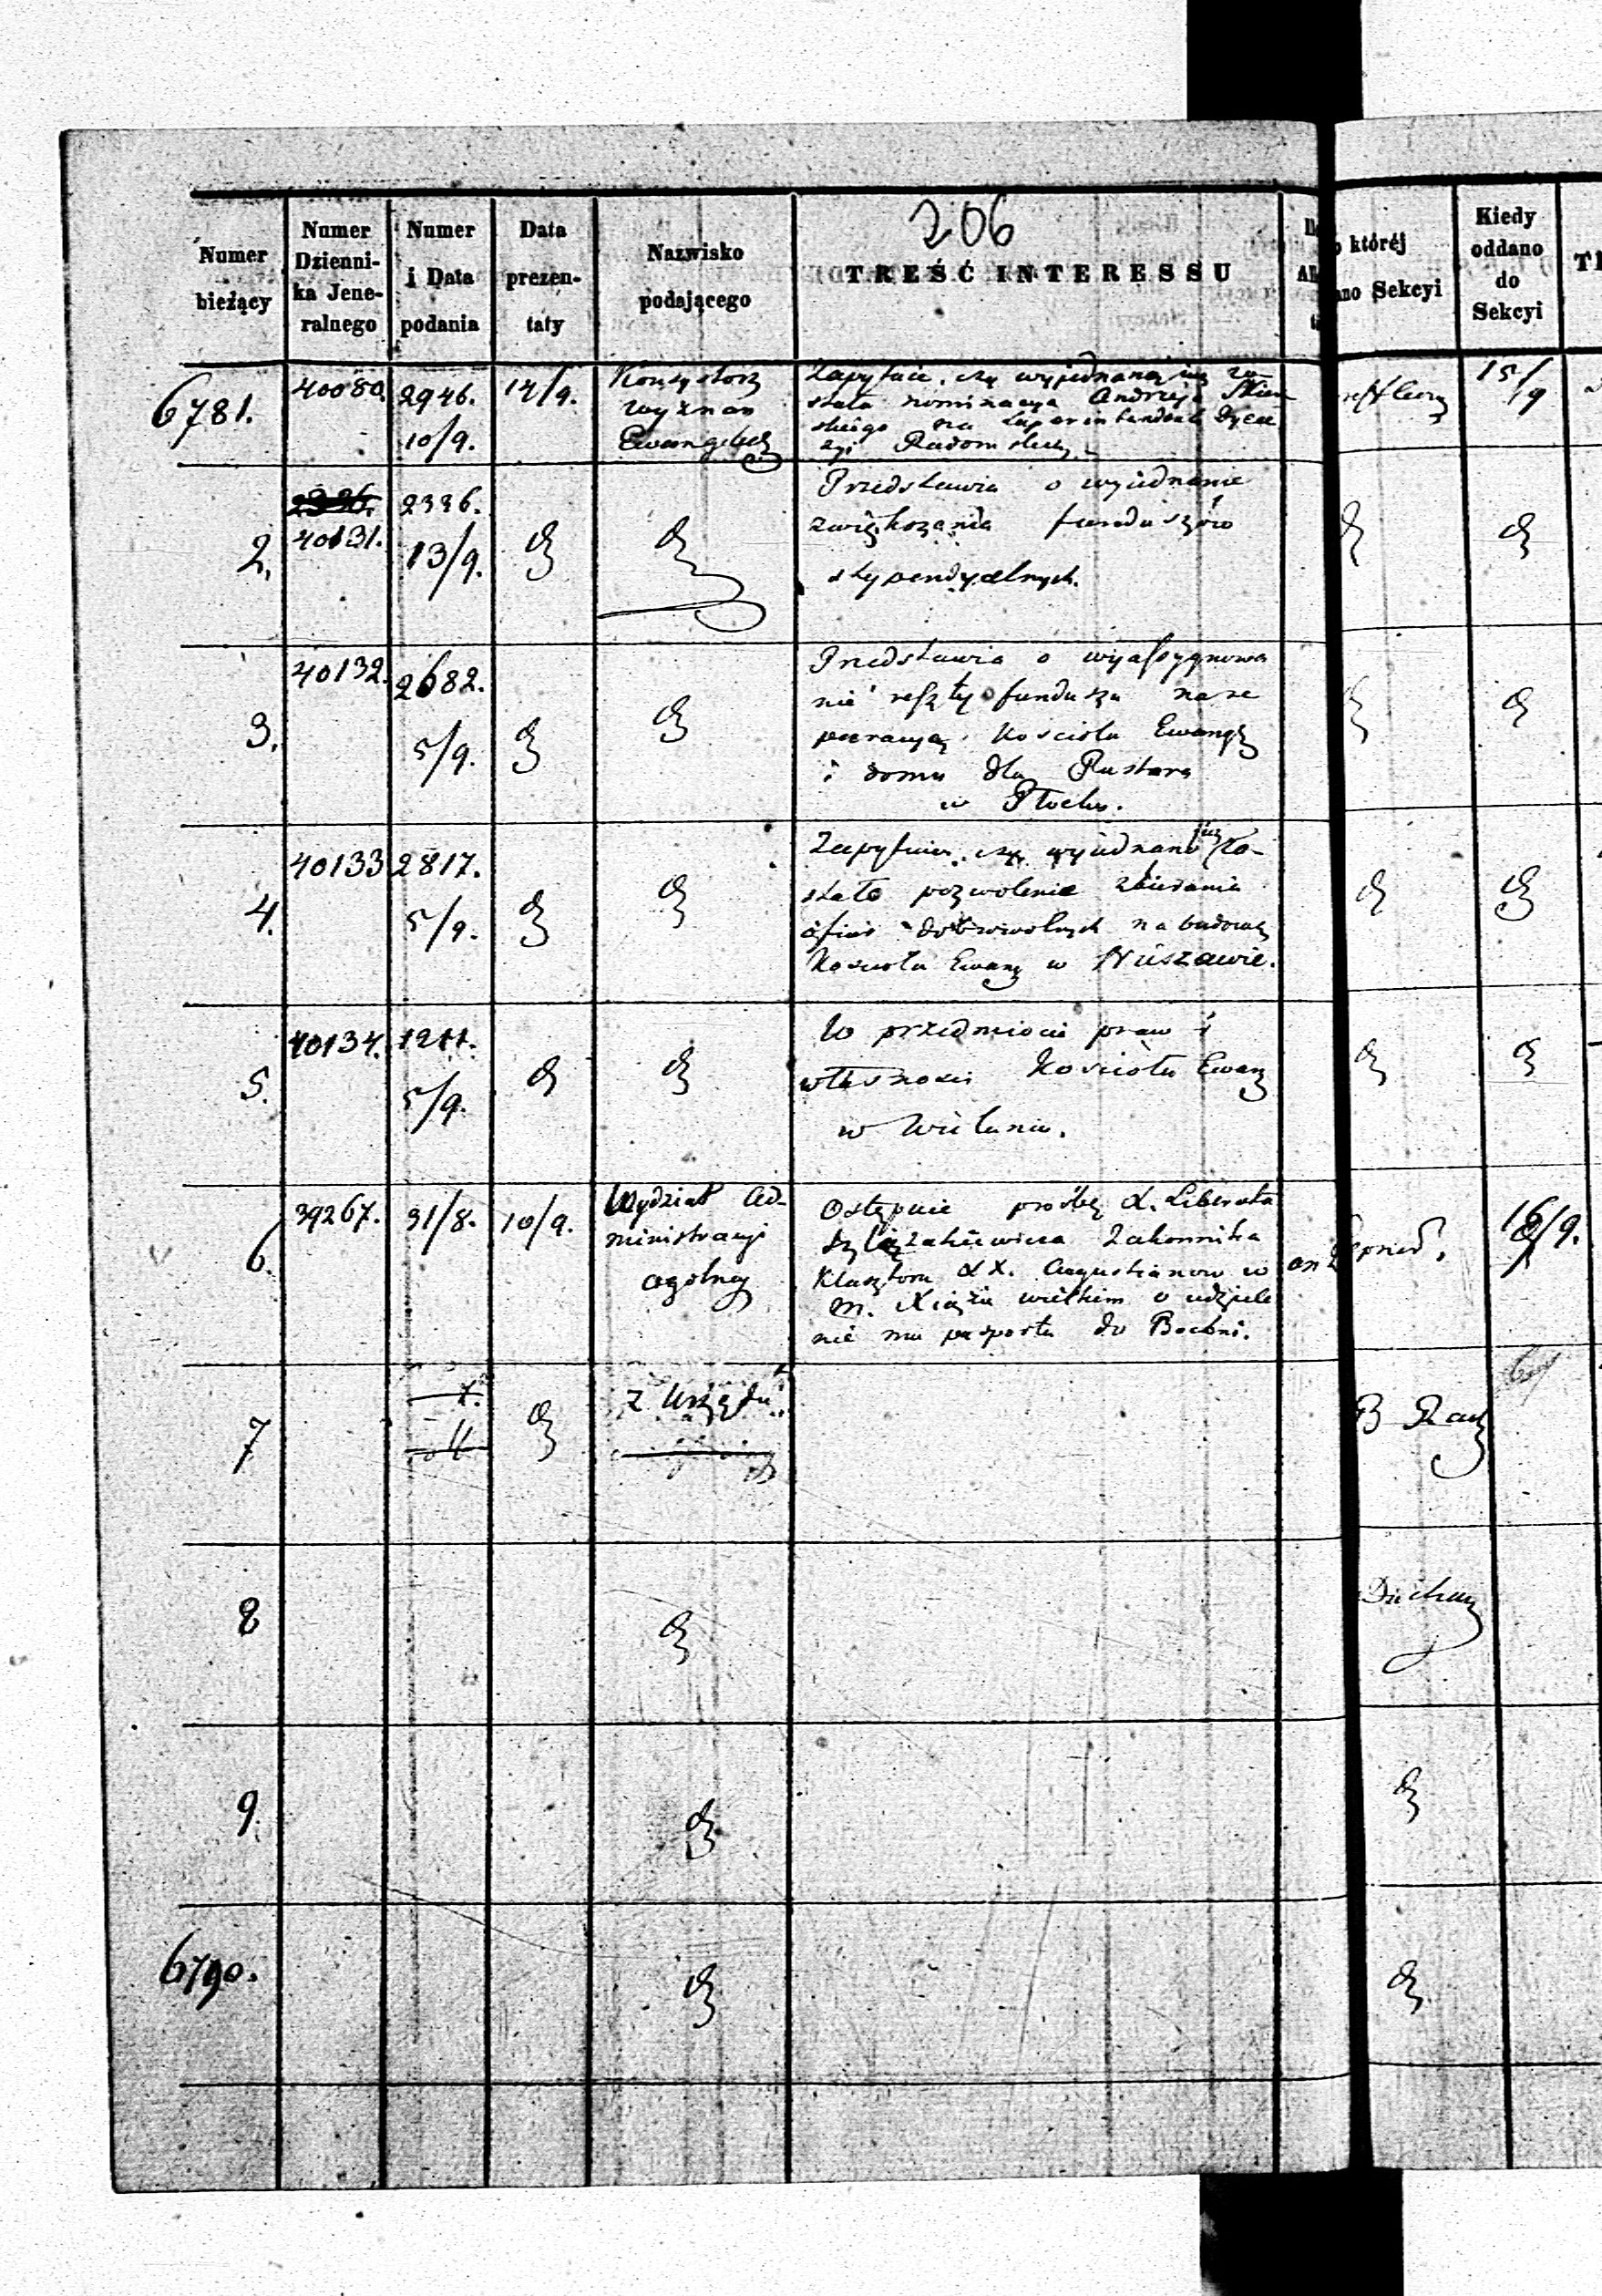 206
Numer bieżący
Numer Dzienni-ka Jene-ralnego
Numer i Data podania
Data prezen-taty
Nazwisko podającego
TREŚĆ INTERESSU
o któréj
ano Sekcyi
Kiedy oddano do Sekcyi
6781.
40080.
2946.
10/9.
14/9.
Konsystorz
wyznan
Ewangelick
Zapytuie, czy wyjednaną już zo
stała nominacya Andrzeja
skiego na Superintendenta Dyece
zyi Radomskiey
15/9
2.
2336.
40131.
2336.
13/9.
Przedstawia o wyiednanie
zwiększenia funduszów
stypendyalnych.
3.
40132.
2682.
5/9.
Przedstawia o wyassygnowa
nie reszty funduszu na re
peracyą Kościoła Ewang
i domu dla Pastora
w Płocku.
4.
40133
2817.
5/9.
Zapytuie, czy wyiednano już zo-
stało pozwolenie zbierania
ofiar dobrowolnych na budowę
Kościoła Ewang w Nieszawie.
5.
40134.
1211.
5/9.
W przedmiocie praw i
własności Kościoła Ewang
w Wieluniu.
6.
39267.
31/8.
10/9.
Wydział Ad-
ministracyi
ogólney
Odstępuie prośbę X. Liberata
Zakonnika
Klasztoru XX. Augustianow w
m. Xiążu wielkim o udziele
nie mu pasportu do Bochni.
16/9.
7
z Urzędu
B
8
9.
6790.